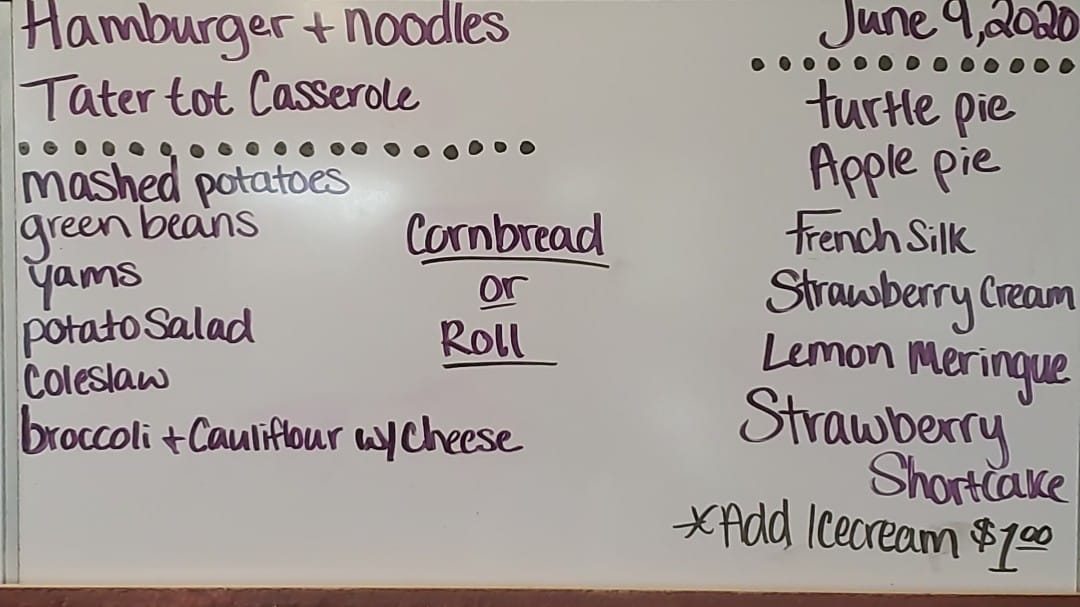 Hamburger + noodles
Tater tot Casserole
mashed potatoes
green beans
yams
potato Salad
Coleslaw
broccoli + Cauliflour w/ Cheese
Cornbread
or
Roll
June 9, 2020
turtle pie
Apple pie
French Silk
Strawberry Cream
Lemon Meringue
Strawberry
Shortcake
*Add Icecream $1.00